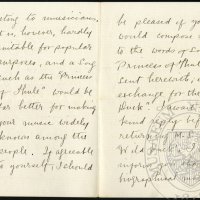 esting to musicians,
it is, however, hardly
suitable for popular
purposes, and a Song
such as the "Princess
of Thule" would be
far better for making
your music widely
known among the
people. If agreeable
to yourself, I should
be pleased if you
would compose
to the words of
Princess of Thule
sent herewith,
exchange for the
Duck". I await
kind reply
returning M.S.
Wild